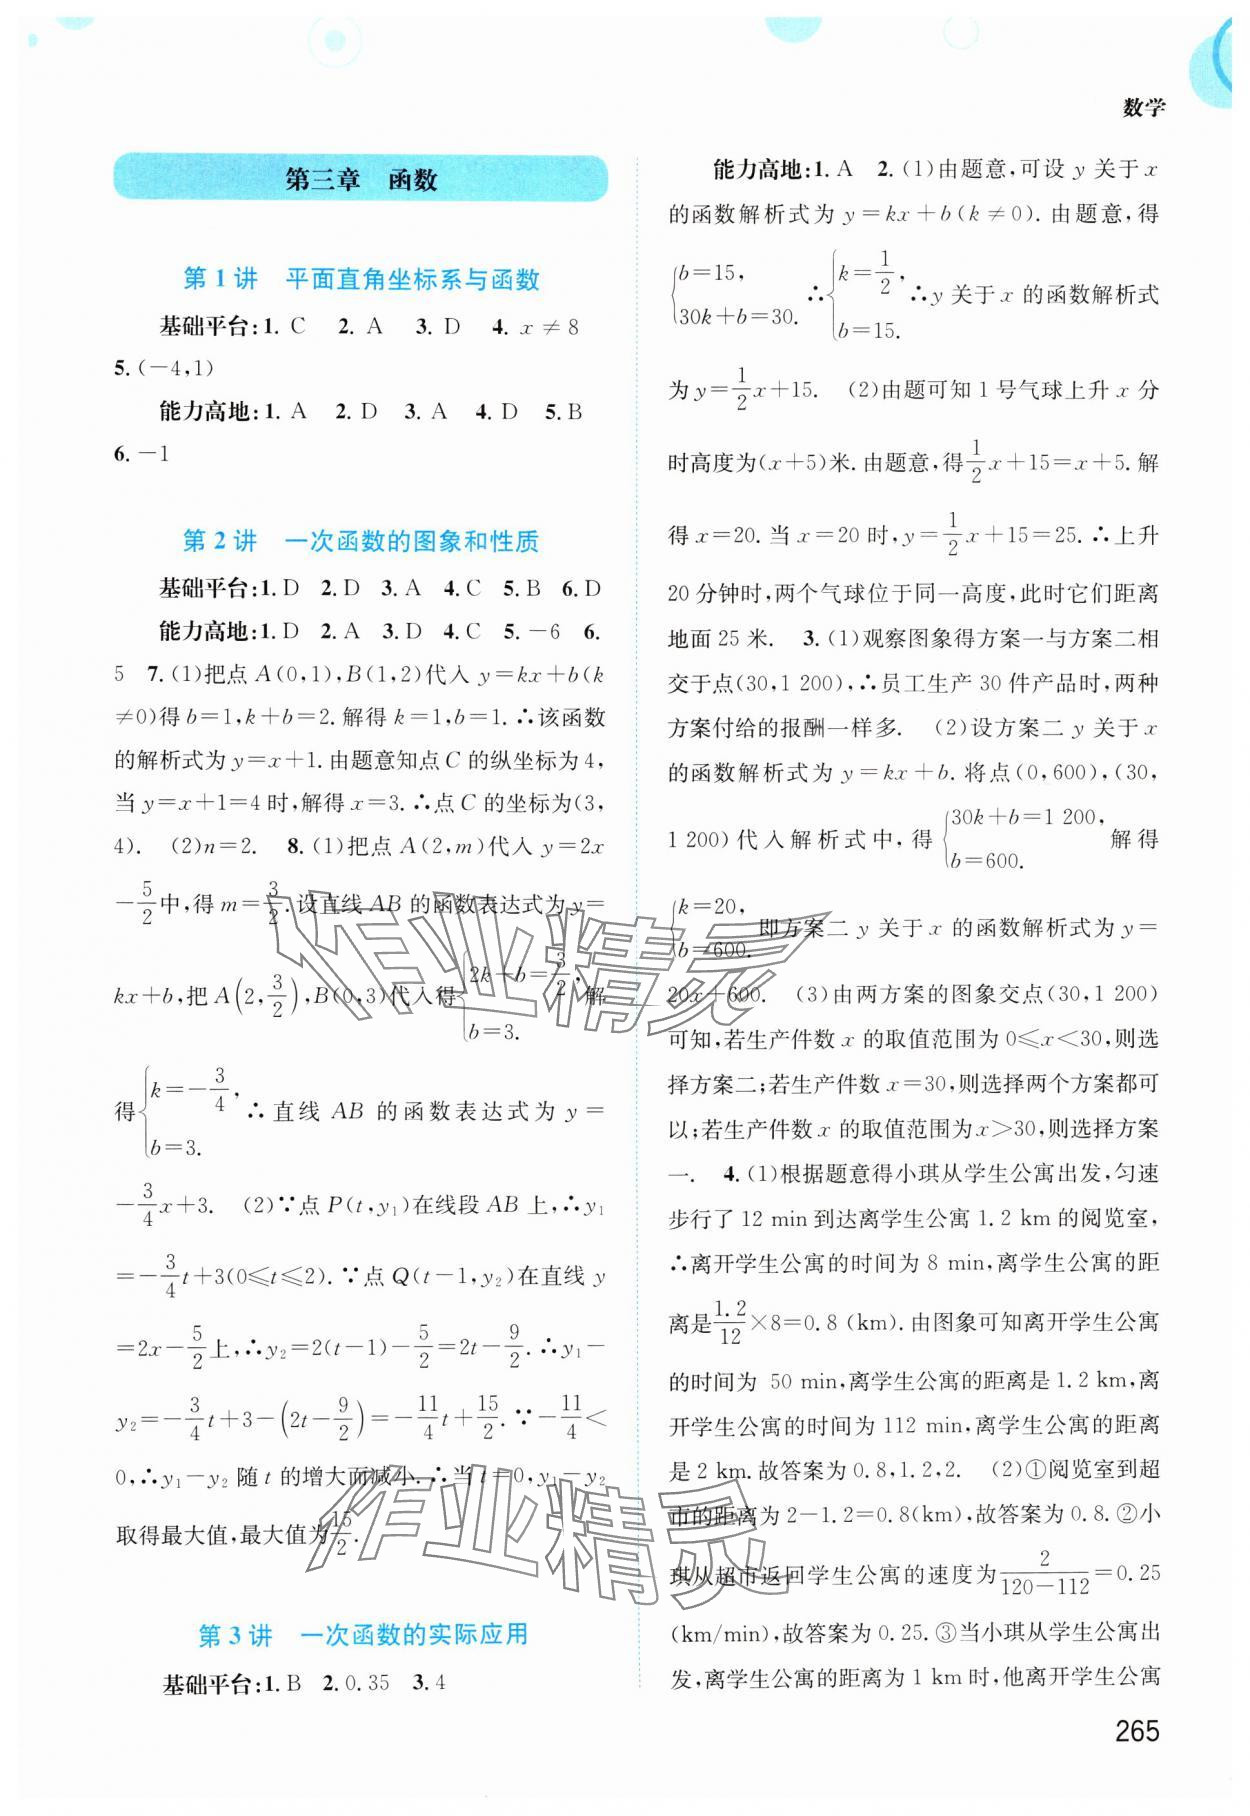 数学
第三章 函数
第 1 讲 平面直角坐标系与函数
基础平台:1. C 2. A 3. D 4. x≠8
5.(-4,1)
能力高地:1. A 2. D 3. A 4. D 5. B
6. -1
第 2 讲 一次函数的图象和性质
基础平台:1. D 2. D 3. A 4. C 5. B 6. D
能力高地:1. D 2. A 3. D 4. C 5. -6 6.
5 7. (1)把点 A(0,1),B(1,2)代入 y=kx+b(k
≠0)得 b=1,k+b=2. 解得 k=1,b=1. ∴该函数
的解析式为 y=x+1. 由题意知点 C 的纵坐标为 4,
当 y=x+1=4 时,解得 x=3. ∴点 C 的坐标为(3,
4). (2)n=2. 8. (1)把点 A(2,m)代入 y=2x
-5/2中,得 m=3/2. 设直线 AB 的函数表达式为 y=
kx+b,把 A(2,3/2),B(0,3)代入得{2k+b=3/2, b=3. 解
得{k=-3/4, b=3. ∴直线 AB 的函数表达式为 y=
-3/4x+3. (2)∵点 P(t,y₁)在线段 AB 上,∴y₁
=-3/4t+3(0≤t≤2). ∵点 Q(t-1,y₂)在直线 y
=2x-5/2上,∴y₂=2(t-1)-5/2=2t-9/2. ∴y₁-
y₂=-3/4t+3-(2t-9/2)=-11/4t+15/2. ∵-11/4<
0,∴y₁-y₂ 随 t 的增大而减小. ∴当 t=0,y₁-y₂
取得最大值,最大值为15/2.
第 3 讲 一次函数的实际应用
基础平台:1. B 2. 0.35 3. 4
能力高地:1. A 2. (1)由题意,可设 y 关于 x
的函数解析式为 y=kx+b(k≠0). 由题意,得
{b=15, 30k+b=30. ∴{k=1/2, b=15. ∴y 关于 x 的函数解析式
为 y=1/2x+15. (2)由题可知 1 号气球上升 x 分
时高度为(x+5)米. 由题意,得1/2x+15=x+5. 解
得 x=20. 当 x=20 时,y=1/2x+15=25. ∴上升
20 分钟时,两个气球位于同一高度,此时它们距离
地面 25 米. 3. (1)观察图象得方案一与方案二相
交于点(30,1 200),∴员工生产 30 件产品时,两种
方案付给的报酬一样多. (2)设方案二 y 关于 x
的函数解析式为 y=kx+b. 将点(0,600),(30,
1 200)代入解析式中,得{30k+b=1 200, b=600. 解得
{k=20, b=600. 即方案二 y 关于 x 的函数解析式为 y=
20x+600. (3)由两方案的图象交点(30,1 200)
可知,若生产件数 x 的取值范围为 0≤x<30,则选
择方案二;若生产件数 x=30,则选择两个方案都可
以;若生产件数 x 的取值范围为 x>30,则选择方案
一. 4. (1)根据题意得小琪从学生公寓出发,匀速
步行了 12 min 到达离学生公寓 1.2 km 的阅览室,
∴离开学生公寓的时间为 8 min,离学生公寓的距
离是1.2/12×8=0.8 (km). 由图象可知离开学生公寓
的时间为 50 min,离学生公寓的距离是 1.2 km,离
开学生公寓的时间为 112 min,离学生公寓的距离
是 2 km. 故答案为 0.8,1.2,2. (2)①阅览室到超
市的距离为 2-1.2=0.8(km),故答案为 0.8. ②小
琪从超市返回学生公寓的速度为2/(120-112)=0.25
(km/min),故答案为 0.25. ③当小琪从学生公寓出
发,离学生公寓的距离为 1 km 时,他离开学生公寓
265
作业精灵
作业精灵